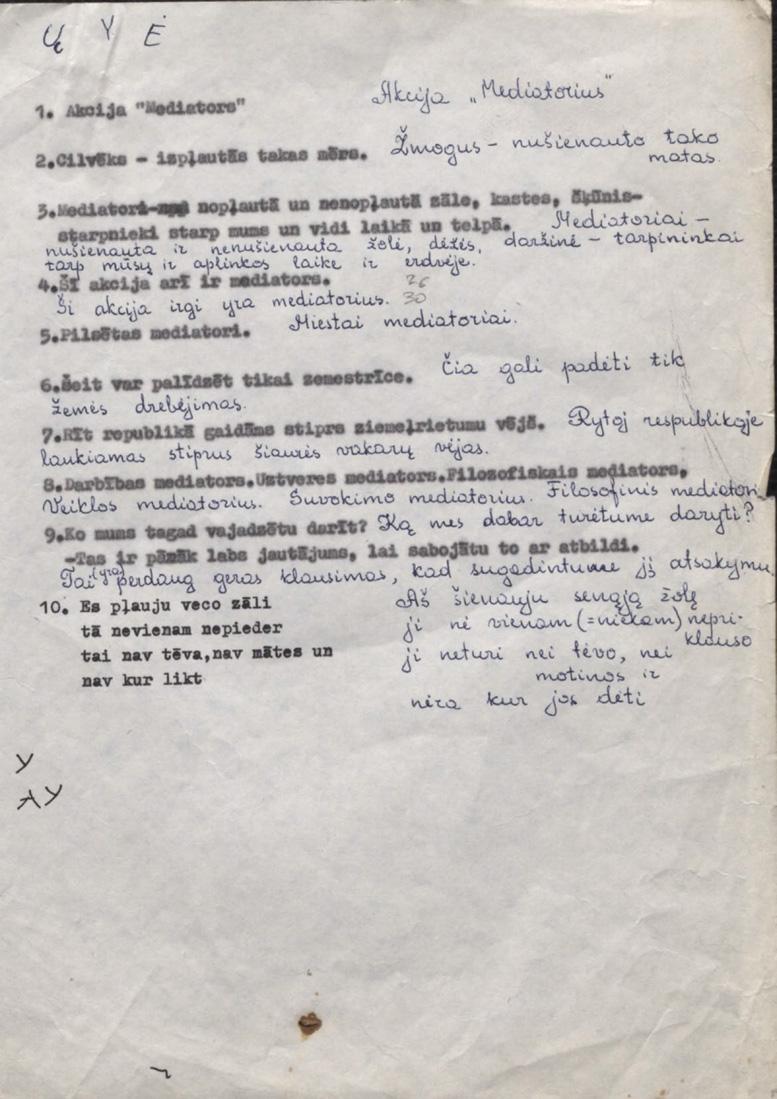 Ų Y Ė
1. Akcija "Mediators" Akcija „Mediatorius"
2.Cilvēks - izpļautās takas mērs. Žmogus - nušienauto tako
matas.
3.Mediatori noplautā un nenopļautā zāle, kastes, šķūnis-
starpnieki starp mums un vidi laikā un telpā. Mediatoriai -
nušienauta ir nenušienauta žolė, dėžės, daržinė - tarpininkai
tarp mūsų ir aplinkos laike ir erdvėje.
4.Šī akcija arī ir mediators. 26
Ši akcija irgi yra mediatorius. 30
5.Pilsētas mediatori. Miestai mediatoriai.
6.Šeit var palīdzēt tikai zemestrīce. Čia gali padėti tik
žemės drebėjimas.
7.Rīt republikā gaidāms stiprs ziemeļrietumu vējš. Rytoj respublikoje
laukiamas stiprus šiaurės vakarų vėjas.
8.Darbības mediators.Uztveres mediators.Filozofiskais mediators,
Veiklos mediatorius. Suvokimo mediatorius. Filosofinis mediatori
9.Ko mums tagad vajadzētu darīt? Ką mes dabar turėtume daryti?
-Tas ir pārāk labs jautājums, lai sabojātu to ar atbildi.
Tai (yra) perdaug geras klausimas, kad sugadintume jį atsakymu
10. Es pļauju veco zāli Aš šienauju senąją žolę
tā nevienam nepieder ji nė vienam (=niekam) nepri-
klauso
tai nav tēva,nav mātes un ji neturi nei tėvo, nei
motinos ir
nav kur likt nėra kur jos dėti
Y
AY